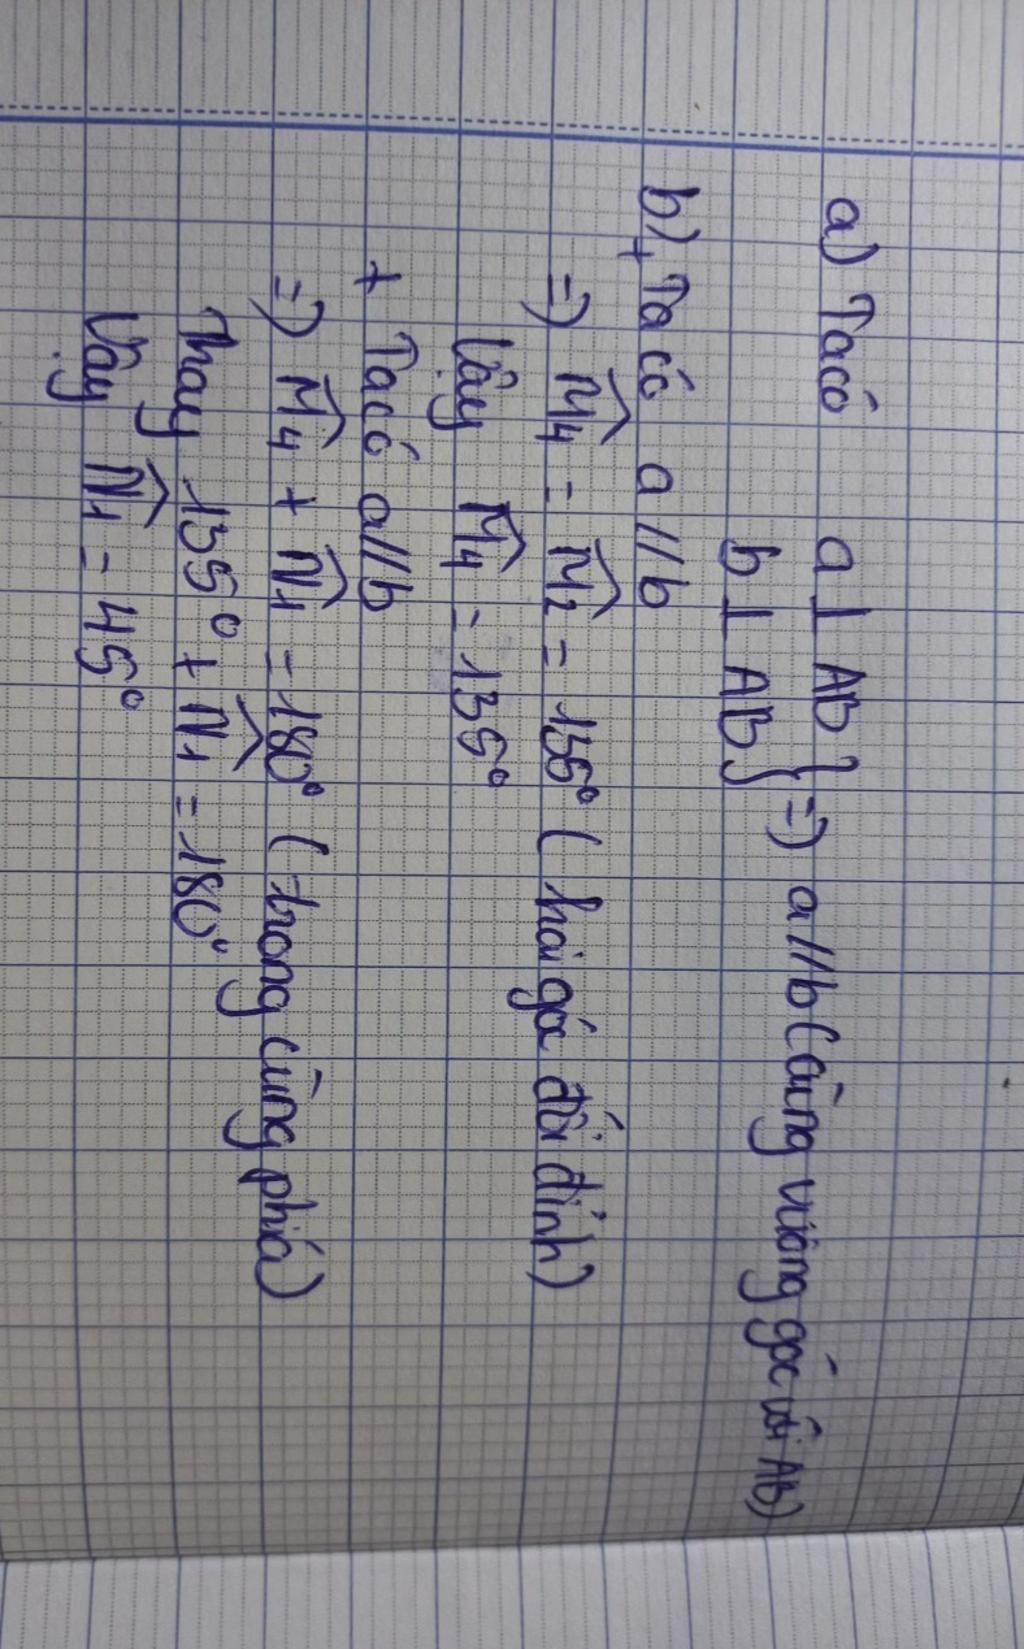 a) Ta có a ⊥ AB } => a // b (cùng vuông góc với AB)
b ⊥ AB }
b) + Ta có a // b
=> M̂4 = M̂2 = 135° (hai góc đối đỉnh)
Vậy M̂4 = 135°
+ Ta có a // b
=> M̂4 + N̂1 = 180° (trong cùng phía)
Thay 135° + N̂1 = 180°
Vậy N̂1 = 45°